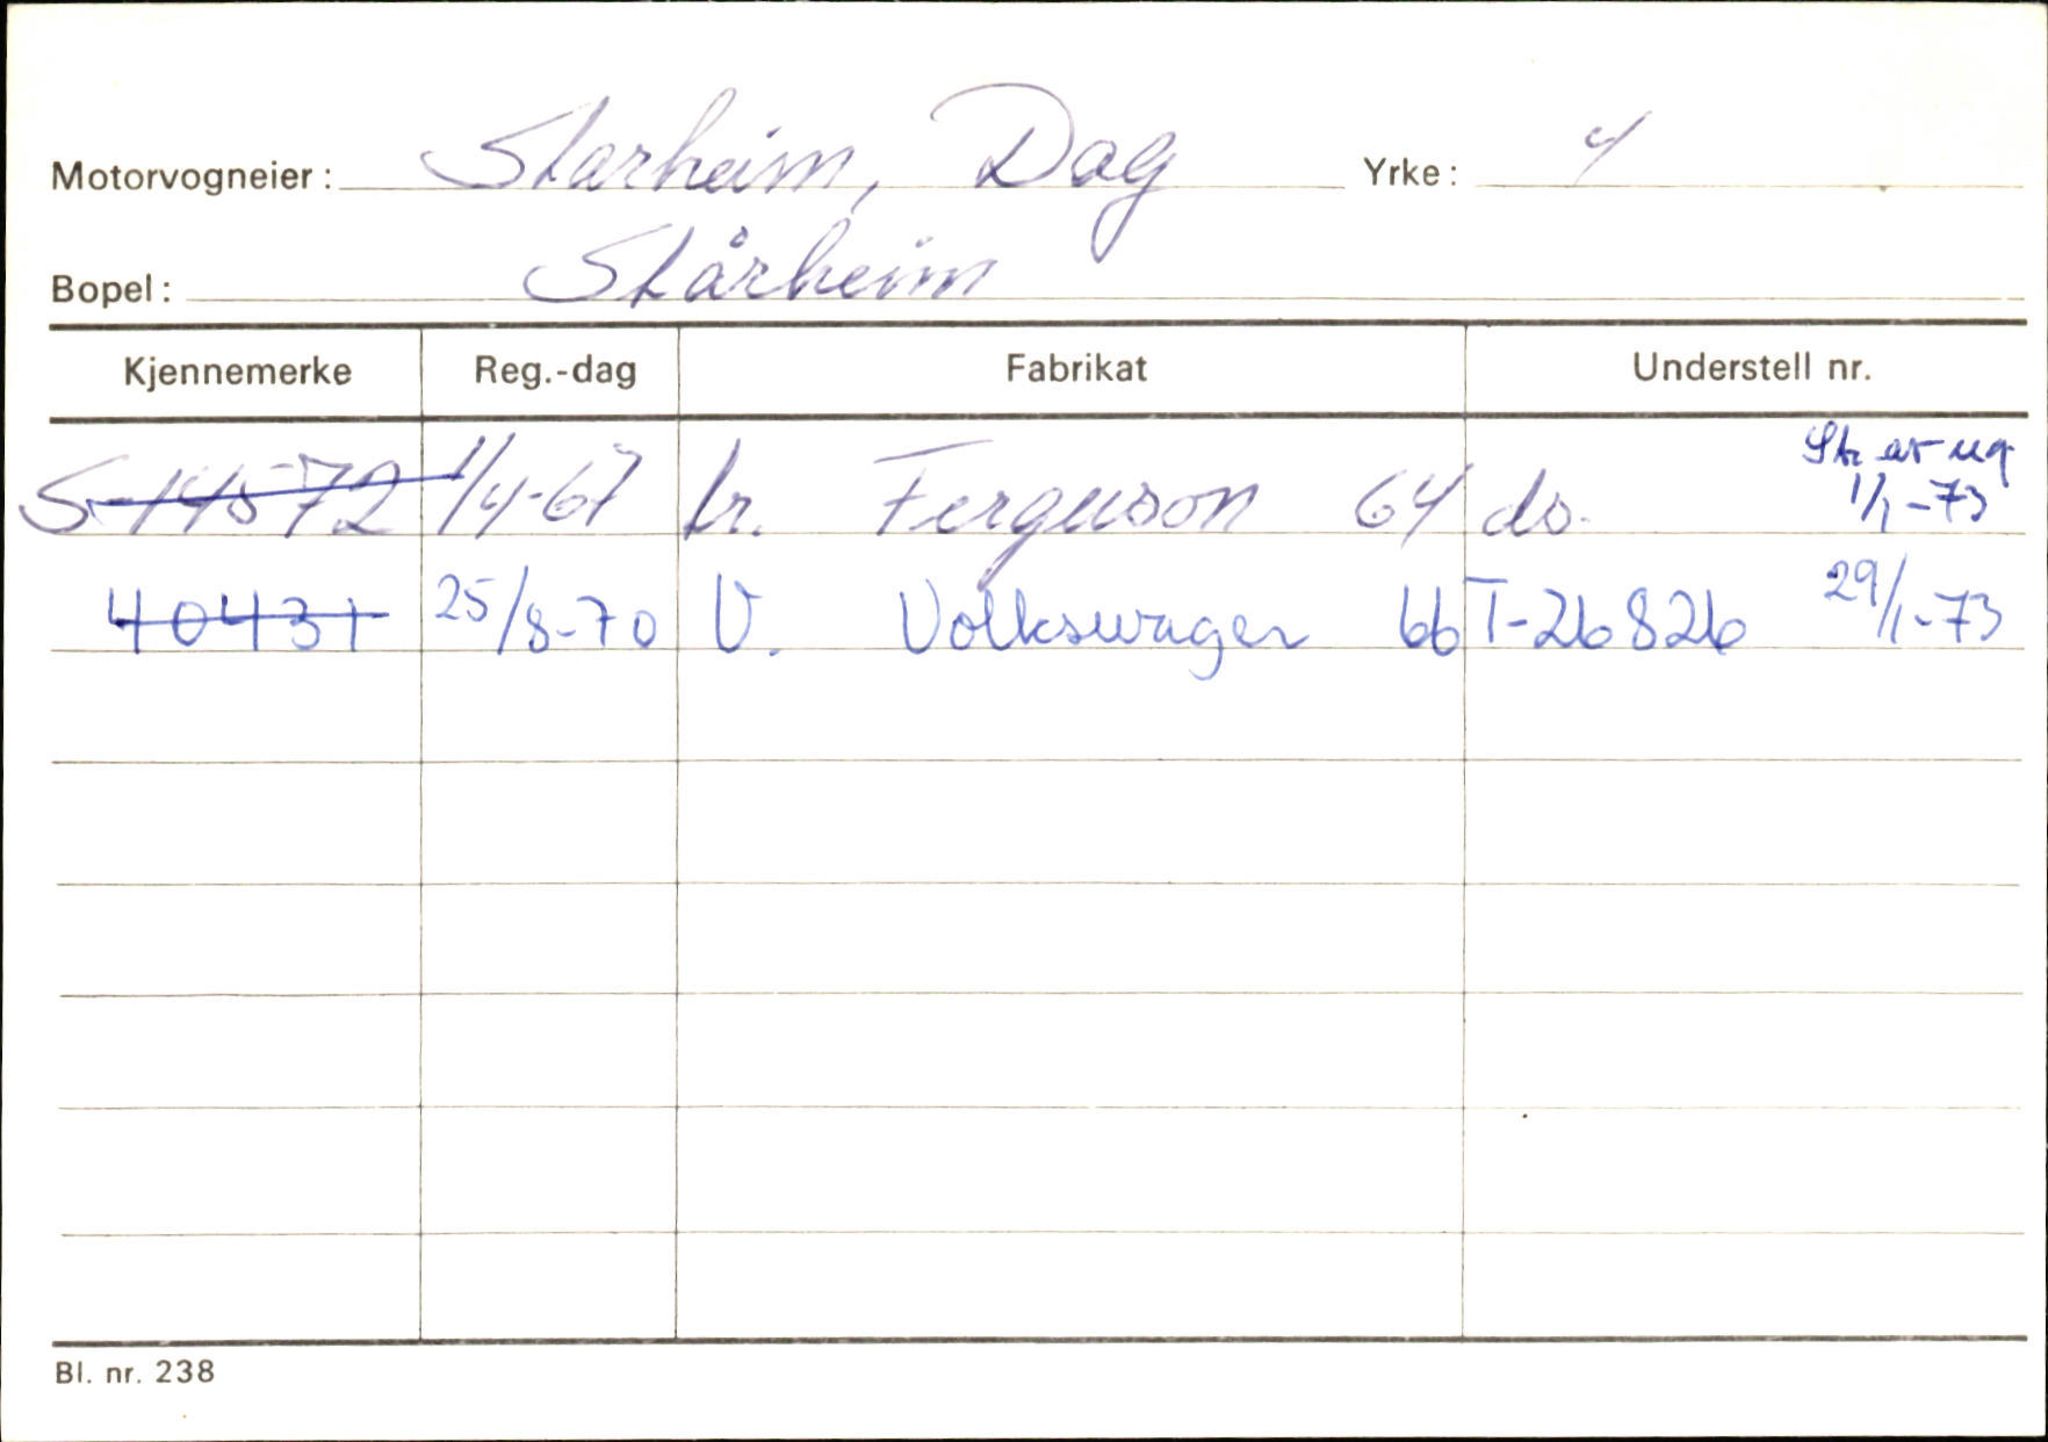 Motorvogneier: Starheim, Dag Yrke: 4
Bopel: Stårheim
Kjennemerke Reg.-dag Fabrikat Understell nr.
S-14572 1/4-67 tr. Ferguson 64 do. Str av reg 1/1-73
40431 25/8-70 V. Volkswagen 66 T-26826 29/1-73
Bl. nr. 238